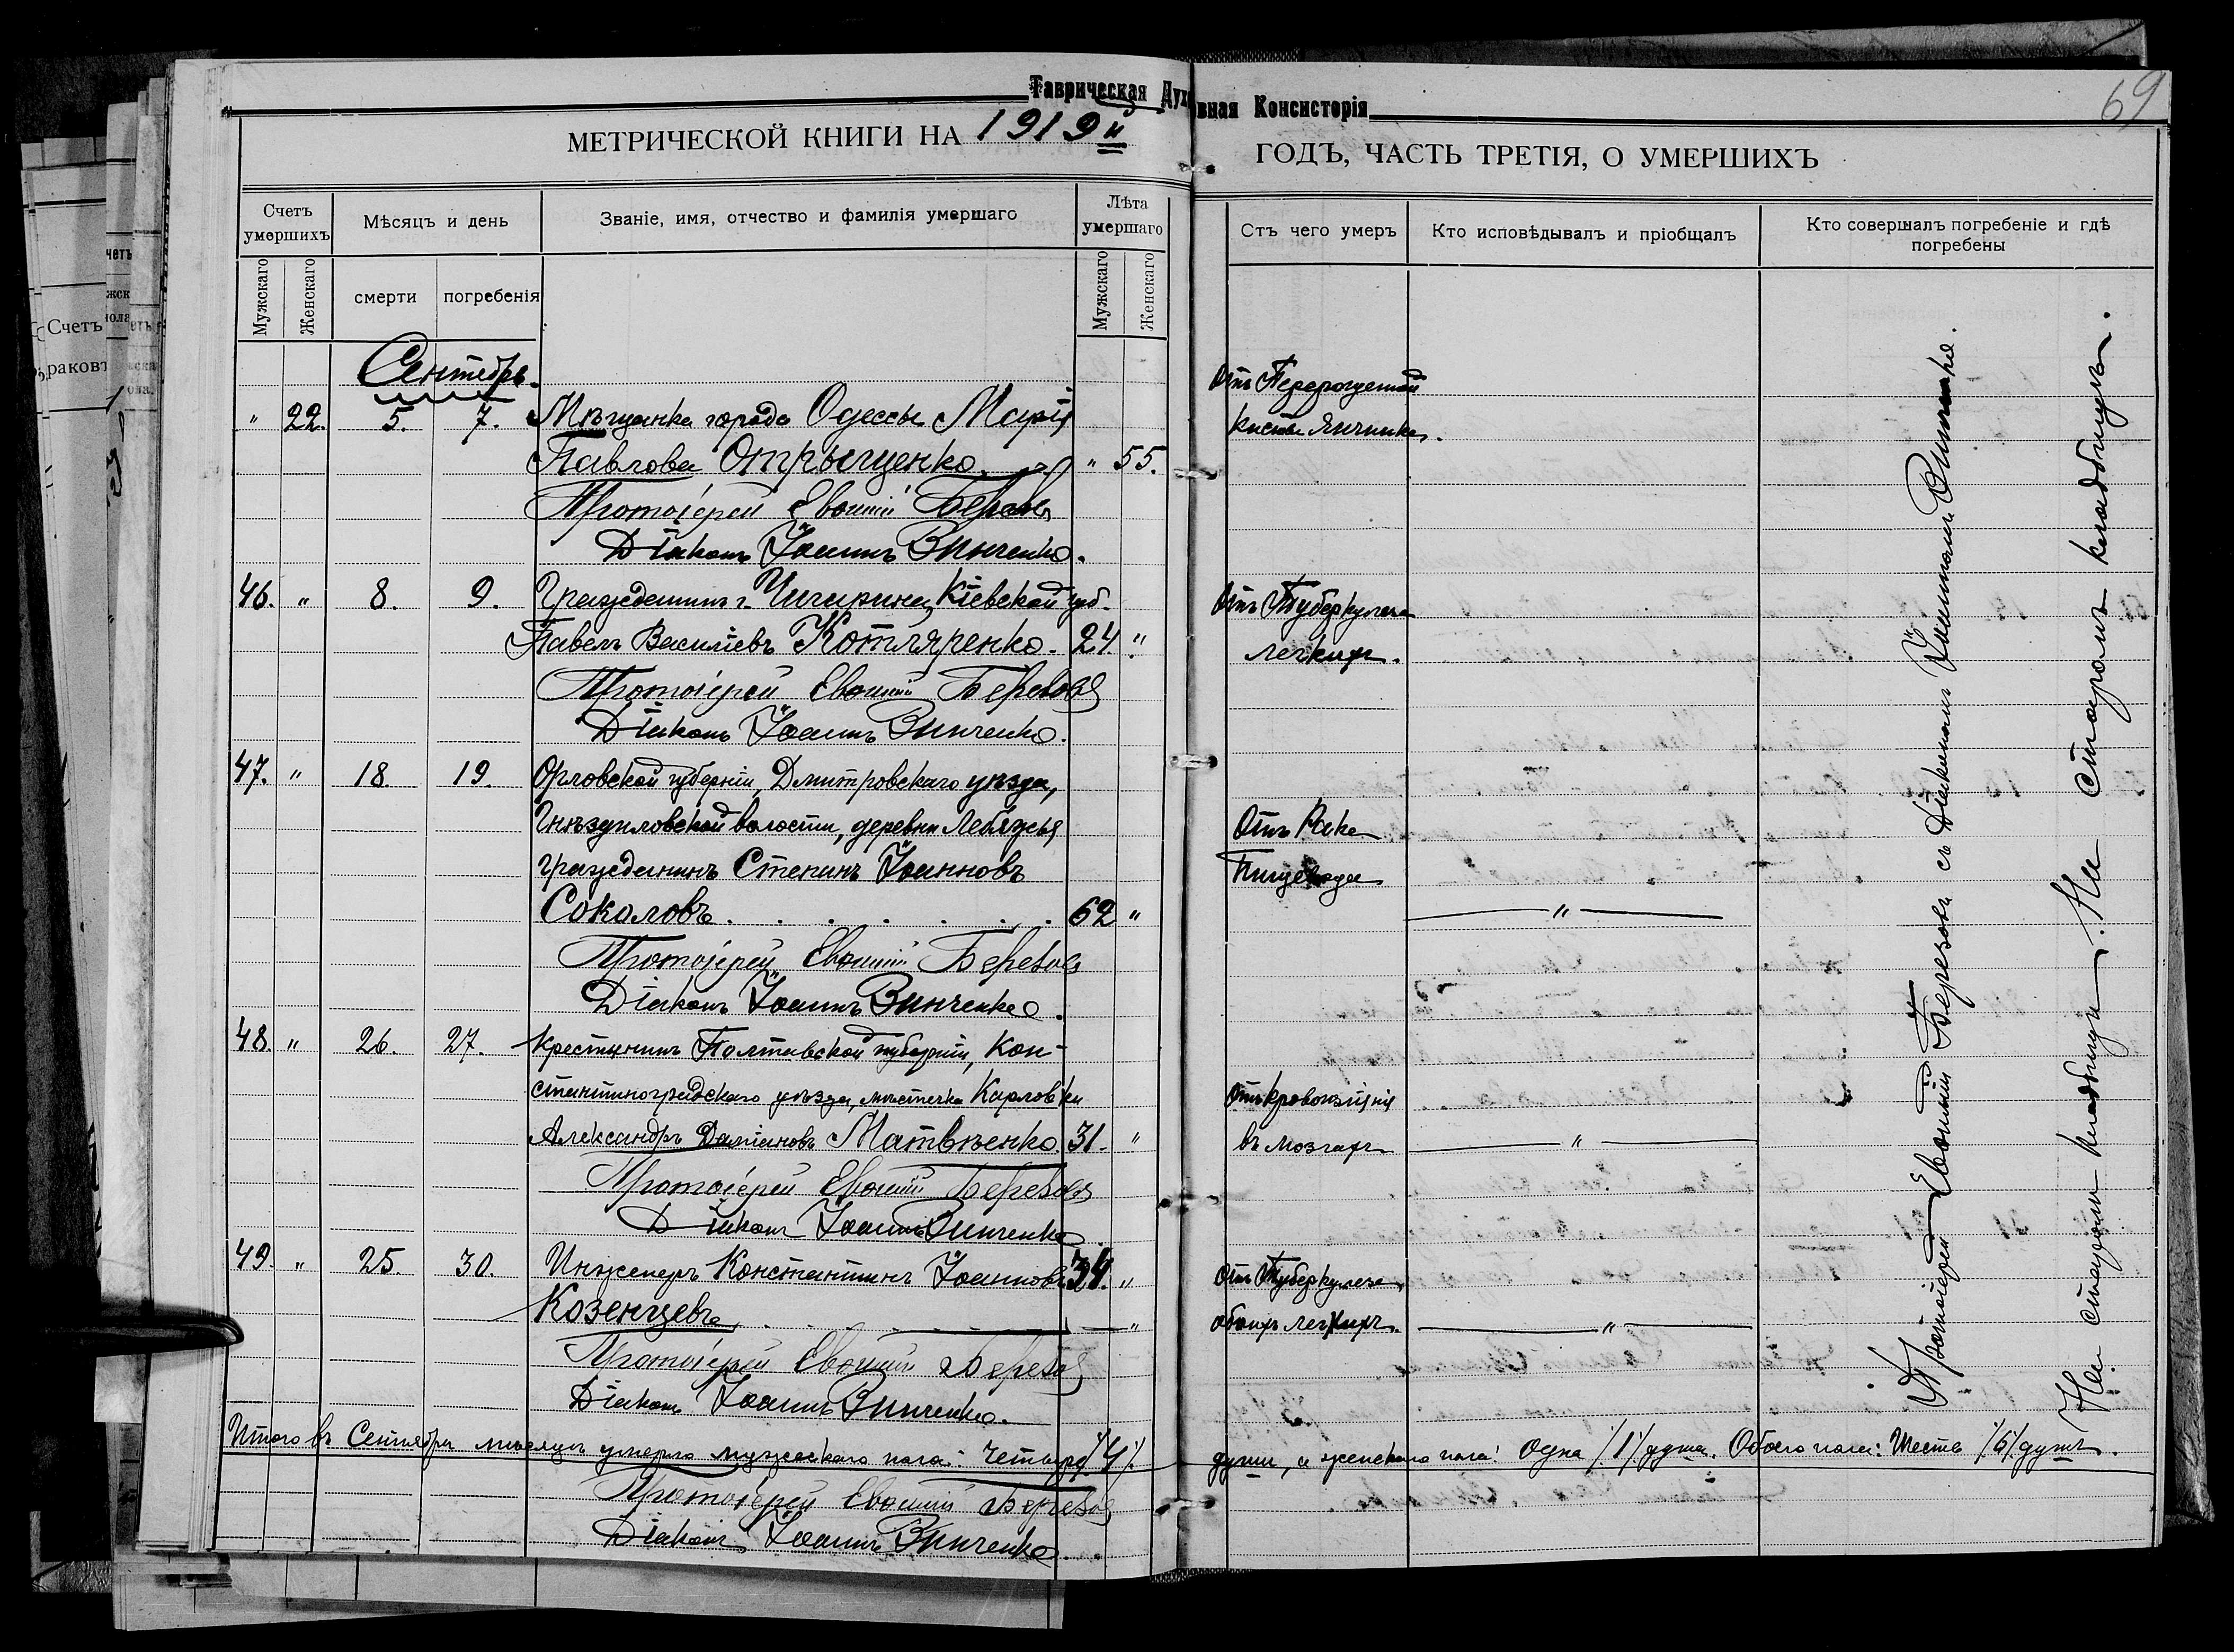 69
Таврическая Духовная Консисторія
МЕТРИЧЕСКОЙ КНИГИ НА 1919й ГОДЪ, ЧАСТЬ ТРЕТІЯ, О УМЕРШИХЪ
Счетъ умершихъ
Мѣсяцъ и день
Званіе, имя, отчество и фамилія умершаго
Лѣта умершаго
Стъ чего умеръ
Кто исповѣдывалъ и пріобщалъ
Кто совершалъ погребеніе и гдѣ погребены
Мужскаго
Женскаго
смерти
погребенія
Мужскаго
Женскаго
Сентябрь.
" 22. 5. 7. Мѣщанка города Одессы Марія
Павлова " 55.
Отъ
кисты яичника.
Протоіерей Евѳимій Березовъ
Діаконъ Іоаннъ Винченко.
46. " 8. 9. Гражданинъ г. Чигирина, Кіевской губ.
Павелъ Василіевъ Котляренко. 24. "
Отъ Туберкулеза
легкихъ.
Протоіерей Евѳимій Березовъ
Діаконъ Іоаннъ Винченко.
47. " 18. 19. Орловской губерніи, Дмитровскаго уѣзда,
Гнѣздиловской волости, деревни Лебяжья
гражданинъ Стефанъ Іоанновъ
Соколовъ. 62 "
Отъ Рака
Пищевода
"
Протоіерей Евѳимій Березовъ
Діаконъ Іоаннъ Винченко.
48. " 26. 27. Крестьянинъ Полтавской губерніи, Кон-
стантиноградскаго уѣзда, мѣстечка Карловки
Александръ Даміановъ Матвѣенко. 31. "
Отъ кровоизліянія
въ мозгахъ
"
Протоіерей Евѳимій Березовъ
Діаконъ Іоаннъ Винченко
49. " 25. 30. Инженеръ Константинъ Іоанновъ 34. "
Козенцевъ "
Отъ Туберкулеза
обоихъ легкихъ.
"
Протоіерей Евѳимій Березовъ
Діаконъ Іоаннъ Винченко.
Протоіерей Евѳимій Березовъ съ Діакономъ Іоанномъ Винченко.
На старом кладбищи. На старомъ кладбищѣ.
Итого въ Сентябрѣ мѣсяцѣ умерло мужескаго пола: четыре /4/ души, а женскаго пола: Одна /1/ душа. Обоего пола: Шесть душъ.
Протоіерей Евѳимій Березовъ
Діаконъ Іоаннъ Винченко.
Счетъ
раковъ